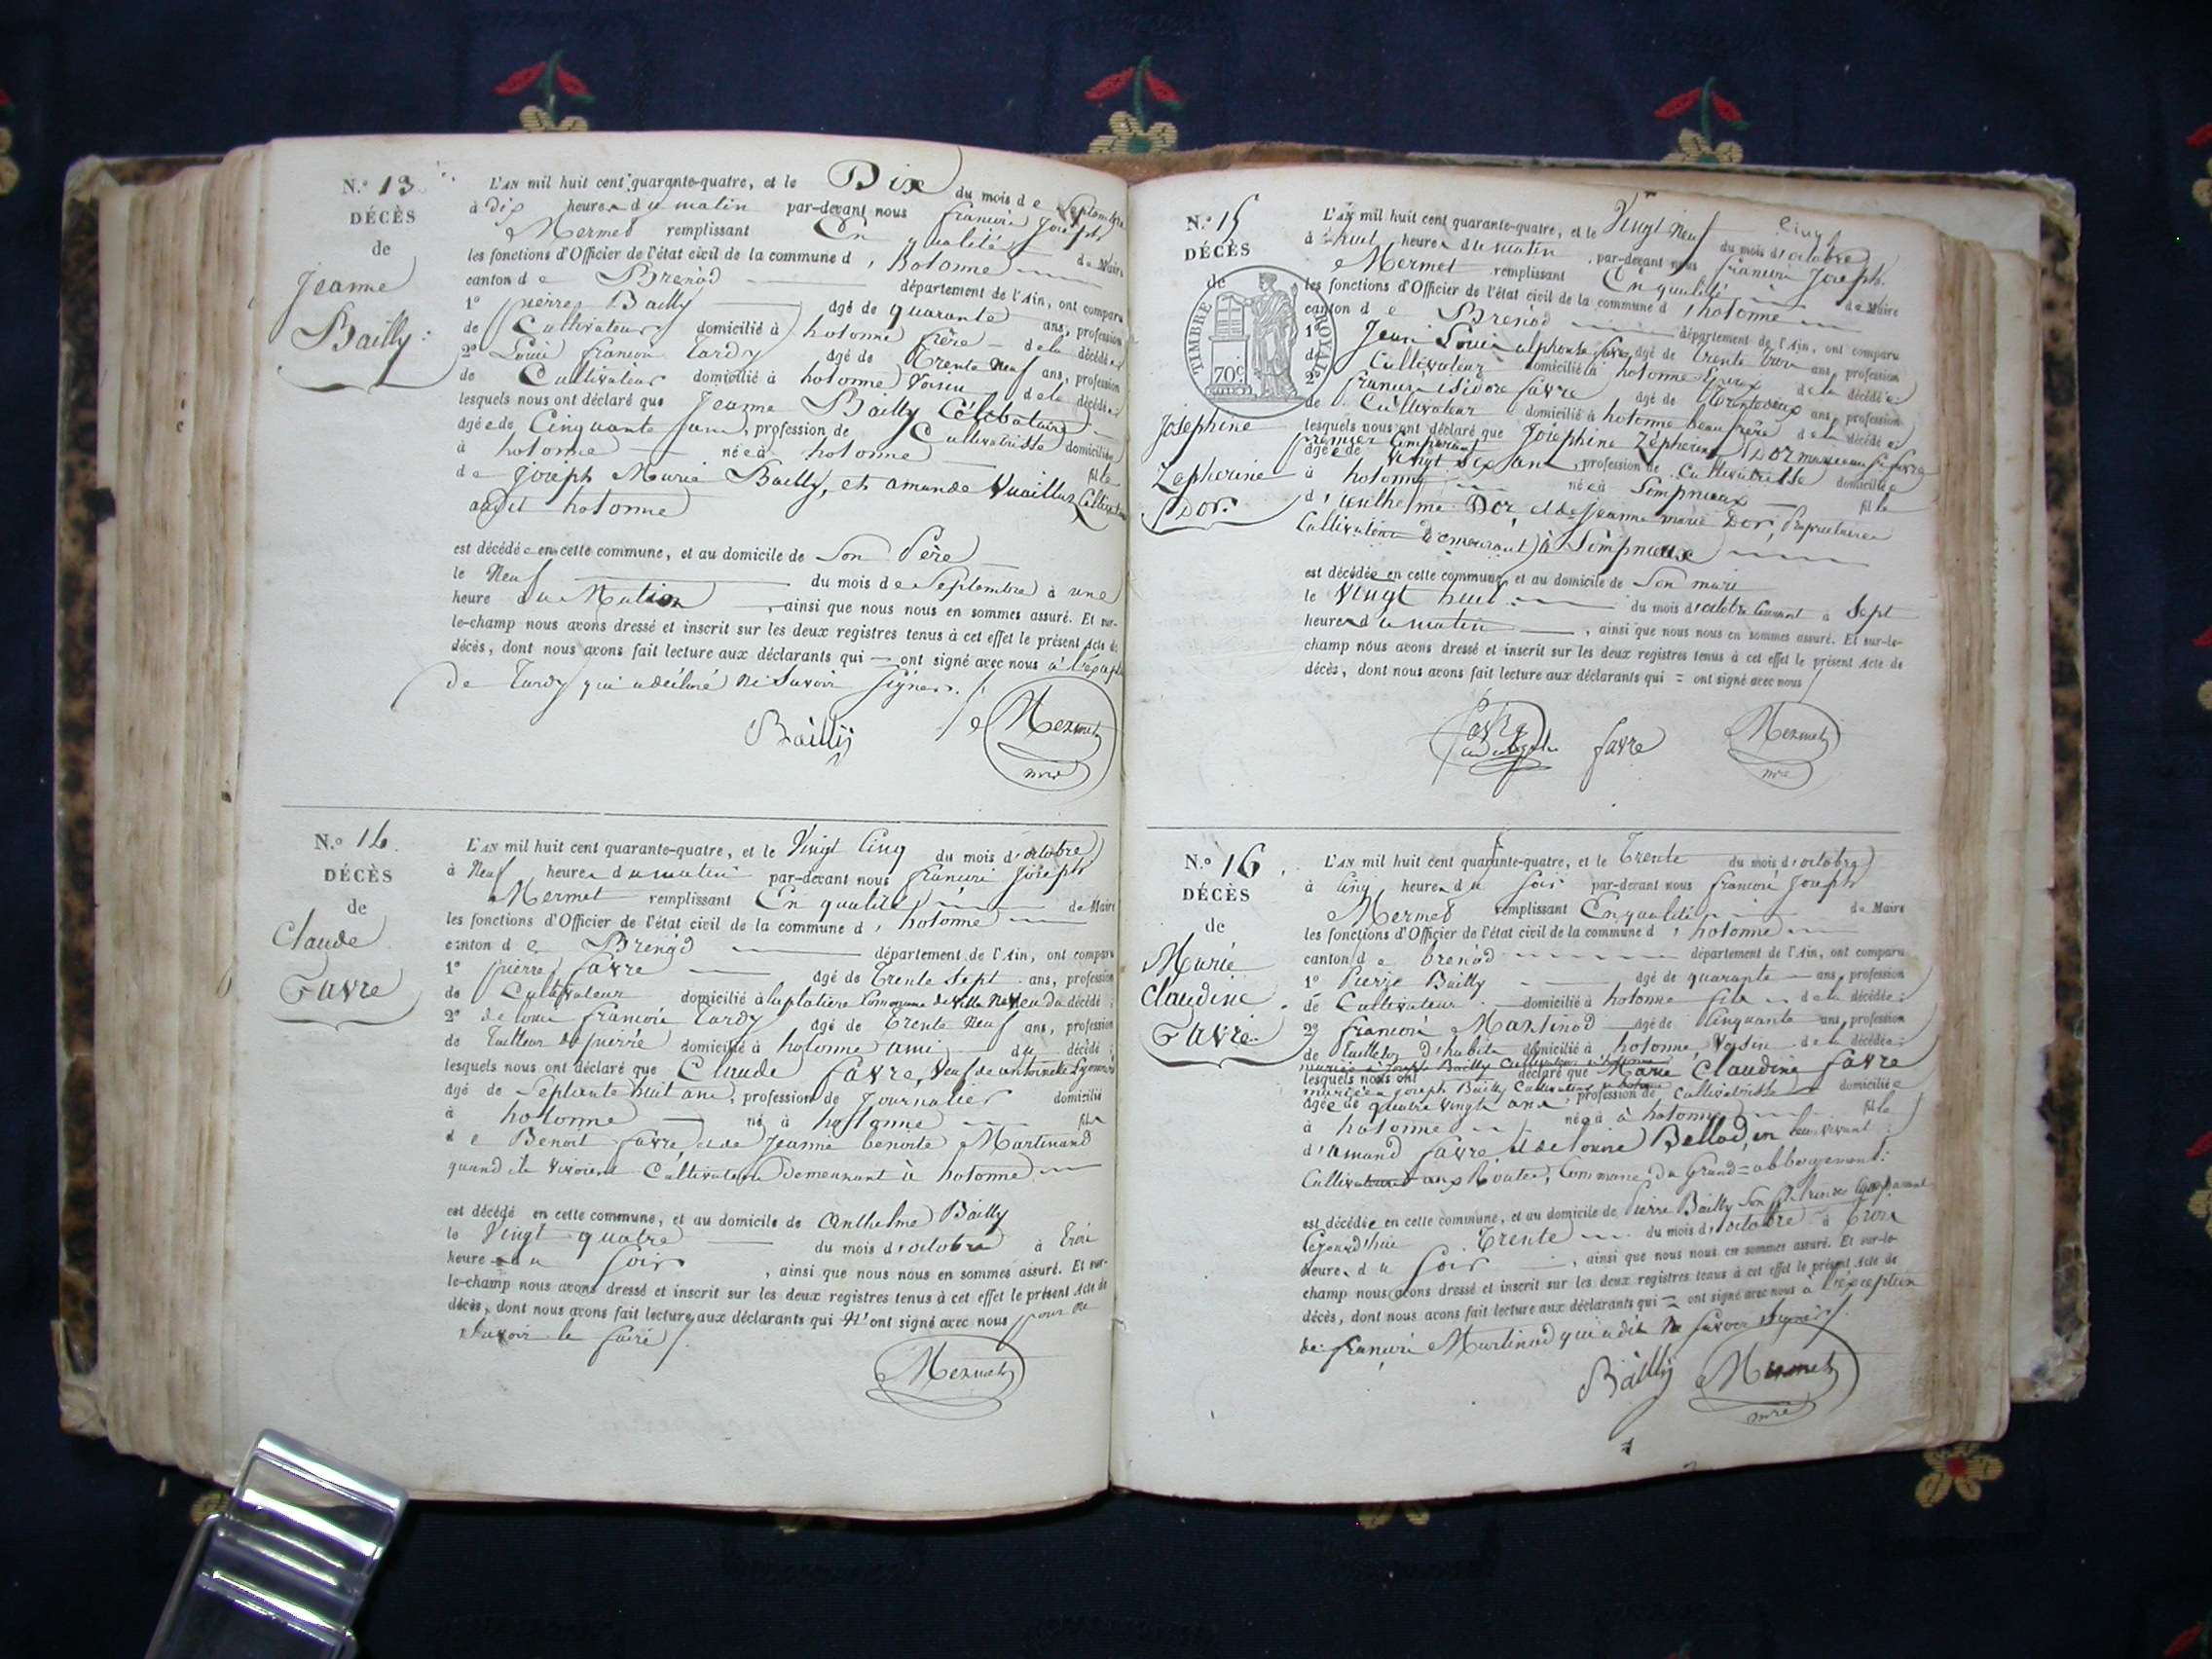 N.° 13
DÉCÈS
de
Jeanne
Bailly
L'AN mil huit cent quarante-quatre, et le Dix du mois de Septembre
à dix heures du matin par-devant nous françois Joseph
Mermet remplissant En qualité de Maire
les fonctions d'Officier de l'état civil de la commune d'hotonne
canton de Brenod département de l'Ain, ont comparu
1° pierre Bailly agé de quarante ans, profession
de Cultivateur domicilié à hotonne frère de la décédée
2° Louis françois Tardy agé de Trente Neuf ans, profession
de Cultivateur domicilié à hotonne Voisin de la décédée
lesquels nous ont déclaré que Jeanne Bailly Célibataire
agée de Cinquante profession de Cultivatrisse domiciliée
à hotonne née à hotonne fille
de Joseph Marie Bailly, et amande
audit hotonne
est décédée en cette commune, et au domicile de Son Père
le Neuf du mois de Septembre à une
heure du Matin, ainsi que nous nous en sommes assuré. Et sur-
le-champ nous avons dressé et inscrit sur les deux registres tenus à cet effet le présent Acte de
décès, dont nous avons fait lecture aux déclarants qui ont signé avec nous à
de Tardy qui a déclaré ne Savoir Signer.
Bailly Mermet
N.° 14
DÉCÈS
de
Claude
Favre
L'AN mil huit cent quarante-quatre, et le Vingt Cinq du mois d'octobre
à Neuf heures du matin par-devant nous françois Joseph
Mermet remplissant En qualité de Maire
les fonctions d'Officier de l'état civil de la commune d'hotonne
canton de Brenod département de l'Ain, ont comparu
1° pierre favre agé de Trente Sept ans, profession
de Cultivateur domicilié à neveu du décédé
2° de louis françois Tardy agé de Trente Neuf ans, profession
de Tailleur de pierre domicilié à hotonne ami du décédé
lesquels nous ont déclaré que Claude favre, Veuf de antoinette
agé de Septante huit ans, profession de Journalier domicilié
à hotonne né à hotonne fils
de Benoit favre, et de Jeanne benoite Martinand
quand ils Vivoient Cultivateurs Demeurant à hotonne
est décédé en cette commune, et au domicile de Anthelme Bailly
le Vingt quatre du mois d'octobre à trois
heures du Soir, ainsi que nous nous en sommes assuré. Et sur-
le-champ nous avons dressé et inscrit sur les deux registres tenus à cet effet le présent Acte de
décès, dont nous avons fait lecture aux déclarants qui N'ont signé avec nous pour ne
Savoir le faire
Mermet
N.° 15
DÉCÈS
de
TIMBRE ROYAL
70c
Josephine
Zepherine
Dor.
L'AN mil huit cent quarante-quatre, et le Vingt Neuf du mois d'octobre
à huit heures du matin par-devant nous françois Joseph
Mermet remplissant En qualité de Maire
les fonctions d'Officier de l'état civil de la commune d'hotonne
canton de Brenod département de l'Ain, ont comparu
1° Jean Louis alphonse favre agé de trente trois ans, profession
de Cultivateur domicilié à hotonne Epoux de la décédée
2° françois isidore favre agé de ans, profession
de Cultivateur domicilié à hotonne beau frère de la décédée
lesquels nous ont déclaré que Josephine Zépherine Dor
premier Comparant
agée de Vingt Six ans, profession de Cultivatrisse domiciliée
à hotonne née à Sompnieux fille
d'anthelme Dor et de Jeanne marie Dor, Propriétaires
Cultivateurs Demeurant à Sompnieux
est décédée en cette commune, et au domicile de Son mari
le Vingt huit du mois d'octobre Courant à Sept
heures du matin, ainsi que nous nous en sommes assuré. Et sur-le-
champ nous avons dressé et inscrit sur les deux registres tenus à cet effet le présent Acte de
décès, dont nous avons fait lecture aux déclarants qui ont signé avec nous
favre Mermet
N.° 16
DÉCÈS
de
Marie
Claudine
Favre
L'AN mil huit cent quarante-quatre, et le Trente du mois d'octobre
à Cinq heures du Soir par-devant nous françois Joseph
Mermet remplissant En qualité de Maire
les fonctions d'Officier de l'état civil de la commune d'hotonne
canton de brenod département de l'Ain, ont comparu
1° Pierre Bailly agé de quarante ans, profession
de Cultivateur domicilié à hotonne fils de la décédée
2° françois Martinod agé de Cinquante ans, profession
de Tailleur d'habits domicilié à hotonne, Voisin de la décédée
lesquels nous ont déclaré que Marie Claudine favre
mariée à Joseph Bailly Cultivateur à hotonne
agée de quatre Vingts ans, profession de Cultivatrisse domiciliée
à hotonne née à à hotonne fille
d'amand favre, et de louise Bellod, en leur vivant
Cultivateurs aux Routes, Commune du Grand=abbergement
est décédée en cette commune, et au domicile de Pierre Bailly Son fils
Cejourd'hui Trente du mois d'octobre à trois
heures du Soir, ainsi que nous nous en sommes assuré. Et sur-le-
champ nous avons dressé et inscrit sur les deux registres tenus à cet effet le présent Acte de
décès, dont nous avons fait lecture aux déclarants qui ont signé avec nous à l'exception
de françois Martinod qui a dit Ne Savoir Signer
Bailly Mermet